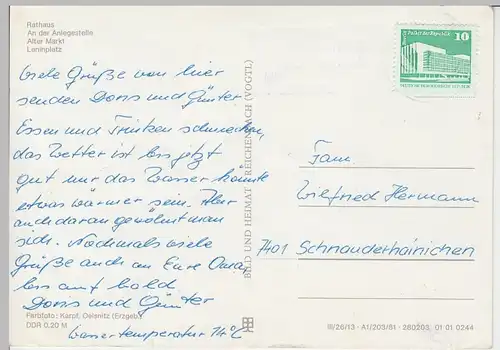 Rathaus
An der Anlegestelle
Alter Markt
Leninplatz
Viele Grüße von hier
senden Doris und Günter
Essen und Trinken schmecken,
das Wetter ist bis jetzt
gut nur das Wasser könnte
etwas wärmer sein. Aber
auch daran gewöhnt man
sich. Nochmals viele
Grüße auch an Eure Oma
bis auf bald
Doris und Günter
Wassertemperatur 14°C
Farbfoto: Karpf, Oelsnitz (Erzgeb.)
DDR 0,20 M
BILD UND HEIMAT REICHENBACH (VOGTL)
Palast der Republik
10
Fam.
Wilfried Hermann
7401 Schnauderhainichen
III/26/13 · A1/203/81 · 280203 01 01 0244